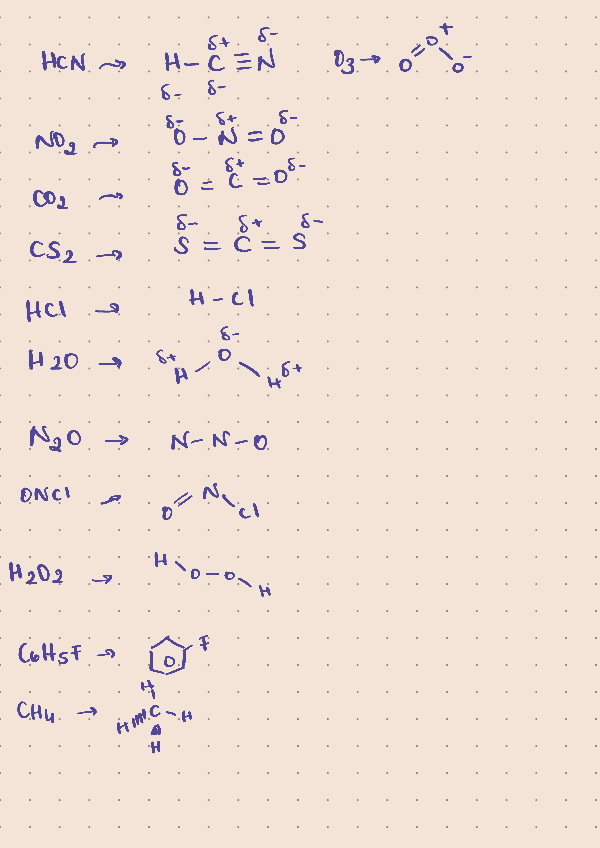 HCN → H–C≡N δ+ δ- δ- δ- O3 → O=O–O + -
NO2 → O–N=O δ- δ+ δ-
CO2 → O=C=O δ- δ+ δ-
CS2 → S=C=S δ- δ+ δ-
HCl → H–Cl
H2O → H–O–H δ+ δ- δ+
N2O → N–N–O
ONCl → O=N–Cl
H2O2 → H–O–O–H
C6H5F → O F
CH4 → H C H H H